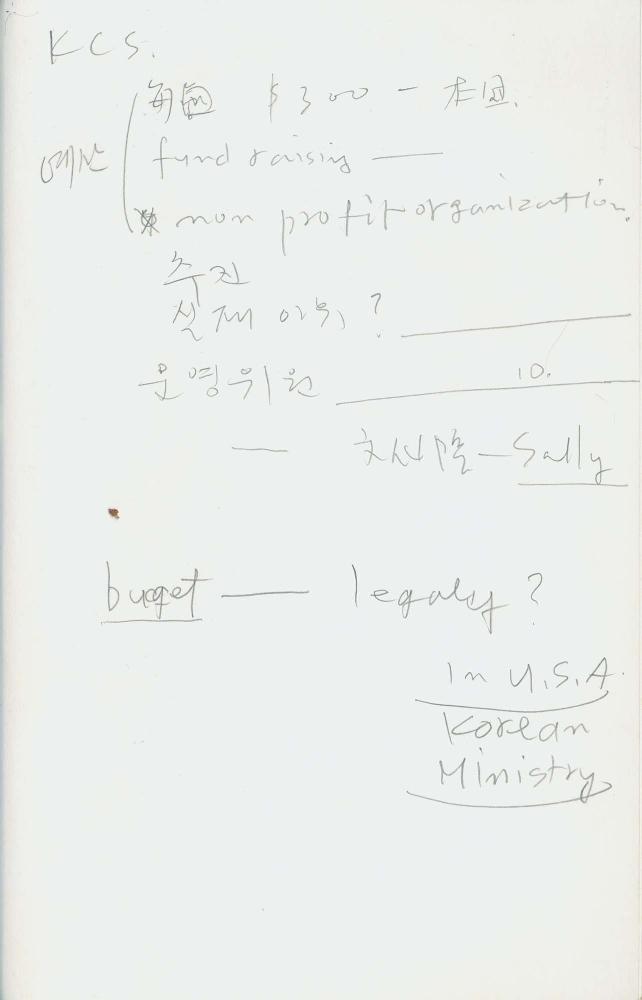 KCS.
$300 -
예산
fund raising —
non profit organization.
추진
실재
?
운영위원 10.
— Sally
buget — legaly ?
In U.S.A.
Korean
Ministry